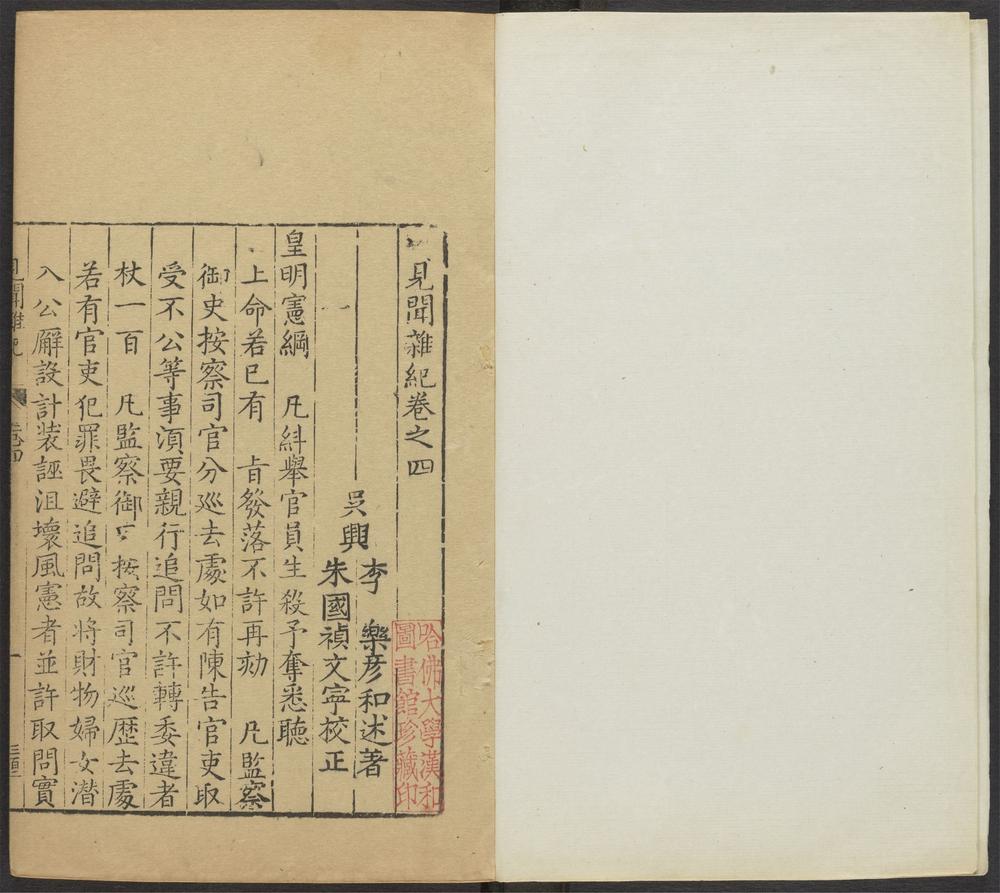 見聞雜紀卷之四
吳興
李樂彥和述著
朱國禎文寧挍正
皇明憲綱　凡糾舉官員生殺予奪悉聽
上命若已有　旨發落不許再劾　凡監察
御史按察司官分廵去處如有陳告官吏取
受不公等事湏要親行追問不許轉委違者
杖一百　凡監察御按察司官廵歷去處
若有官吏犯罪畏避追問故將財物婦女潛
入公廨設計装誣沮壞風憲者並許取問實
見聞雜紀
卷四
一
哈佛大學漢和
圖書館珍藏印